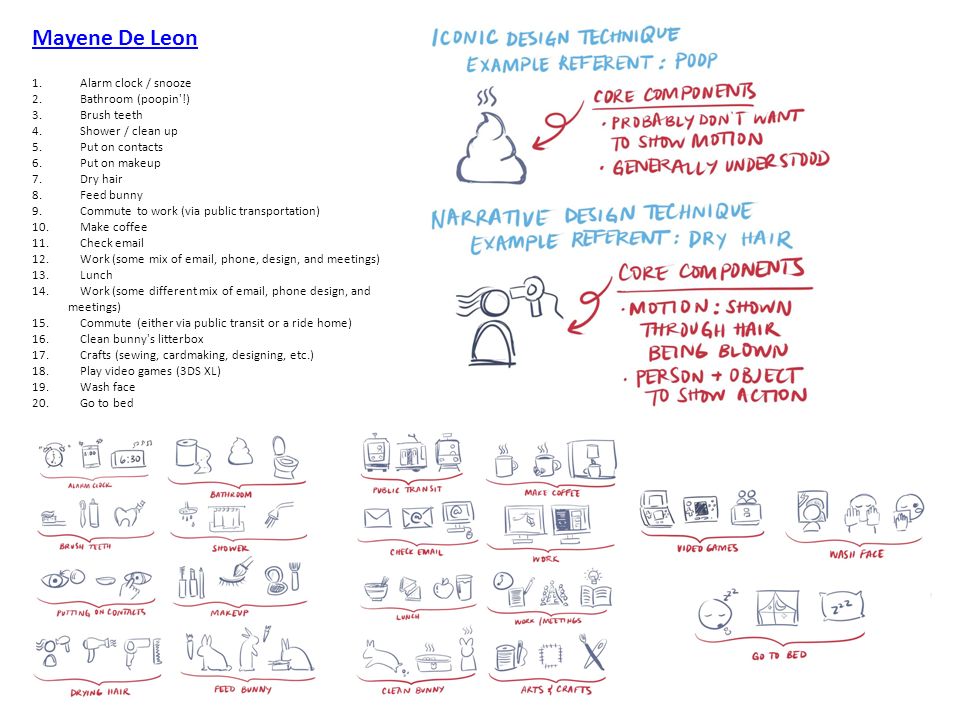 Mayene De Leon
1. Alarm clock / snooze
2. Bathroom (poopin'!)
3. Brush teeth
4. Shower / clean up
5. Put on contacts
6. Put on makeup
7. Dry hair
8. Feed bunny
9. Commute to work (via public transportation)
10. Make coffee
11. Check email
12. Work (some mix of email, phone, design, and meetings)
13. Lunch
14. Work (some different mix of email, phone design, and
meetings)
15. Commute (either via public transit or a ride home)
16. Clean bunny's litterbox
17. Crafts (sewing, cardmaking, designing, etc.)
18. Play video games (3DS XL)
19. Wash face
20. Go to bed
ICONIC DESIGN TECHNIQUE
EXAMPLE REFERENT: POOP
CORE COMPONENTS
• PROBABLY DON'T WANT
TO SHOW MOTION
• GENERALLY UNDERSTOOD
NARRATIVE DESIGN TECHNIQUE
EXAMPLE REFERENT: DRY HAIR
CORE COMPONENTS
• MOTION: SHOWN
THROUGH HAIR
BEING BLOWN
• PERSON + OBJECT
TO SHOW ACTION
6:30
ALARM CLOCK
BATHROOM
PUBLIC TRANSIT
MAKE COFFEE
BRUSH TEETH
SHOWER
@
@
CHECK EMAIL
WORK
VIDEO GAMES
WASH FACE
PUTTING ON CONTACTS
MAKEUP
LUNCH
WORK/MEETINGS
ZZZ
ZZZ
GO TO BED
DRYING HAIR
FEED BUNNY
CLEAN BUNNY
ARTS & CRAFTS